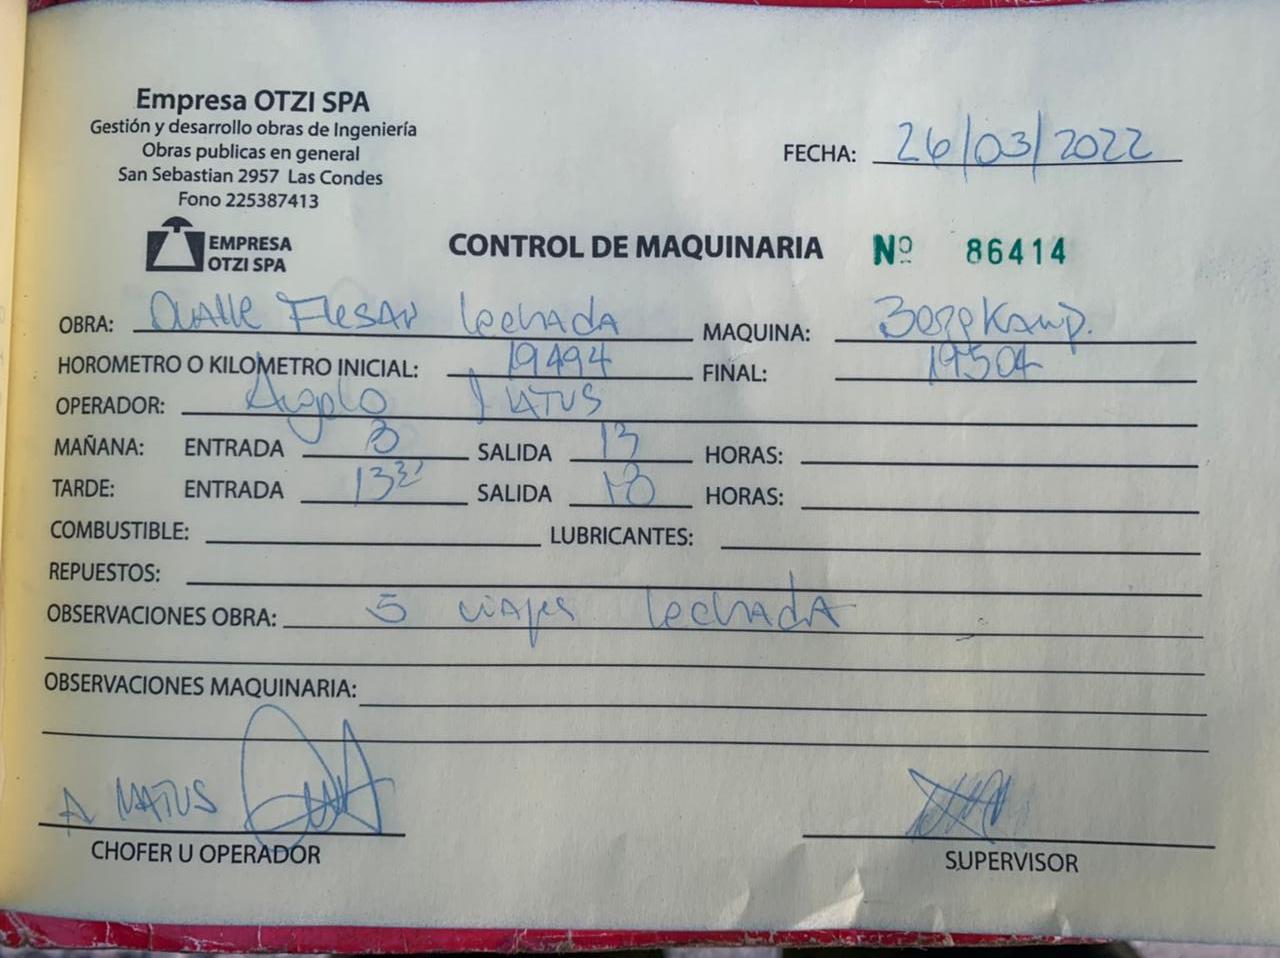 Empresa OTZI SPA
Gestión y desarrollo obras de Ingeniería
Obras publicas en general
San Sebastian 2957 Las Condes
Fono 225387413
FECHA: 26/03/2022
EMPRESA
OTZI SPA
CONTROL DE MAQUINARIA Nº 86414
OBRA: lechada MAQUINA: Bergkamp.
HOROMETRO O KILOMETRO INICIAL: 19494 FINAL: 19504
OPERADOR: MATUS
MAÑANA: ENTRADA 8 SALIDA 13 HORAS:
TARDE: ENTRADA 13 SALIDA 18 HORAS:
COMBUSTIBLE: LUBRICANTES:
REPUESTOS:
OBSERVACIONES OBRA: 5 viajes lechada
OBSERVACIONES MAQUINARIA:
A MATUS
CHOFER U OPERADOR
SUPERVISOR